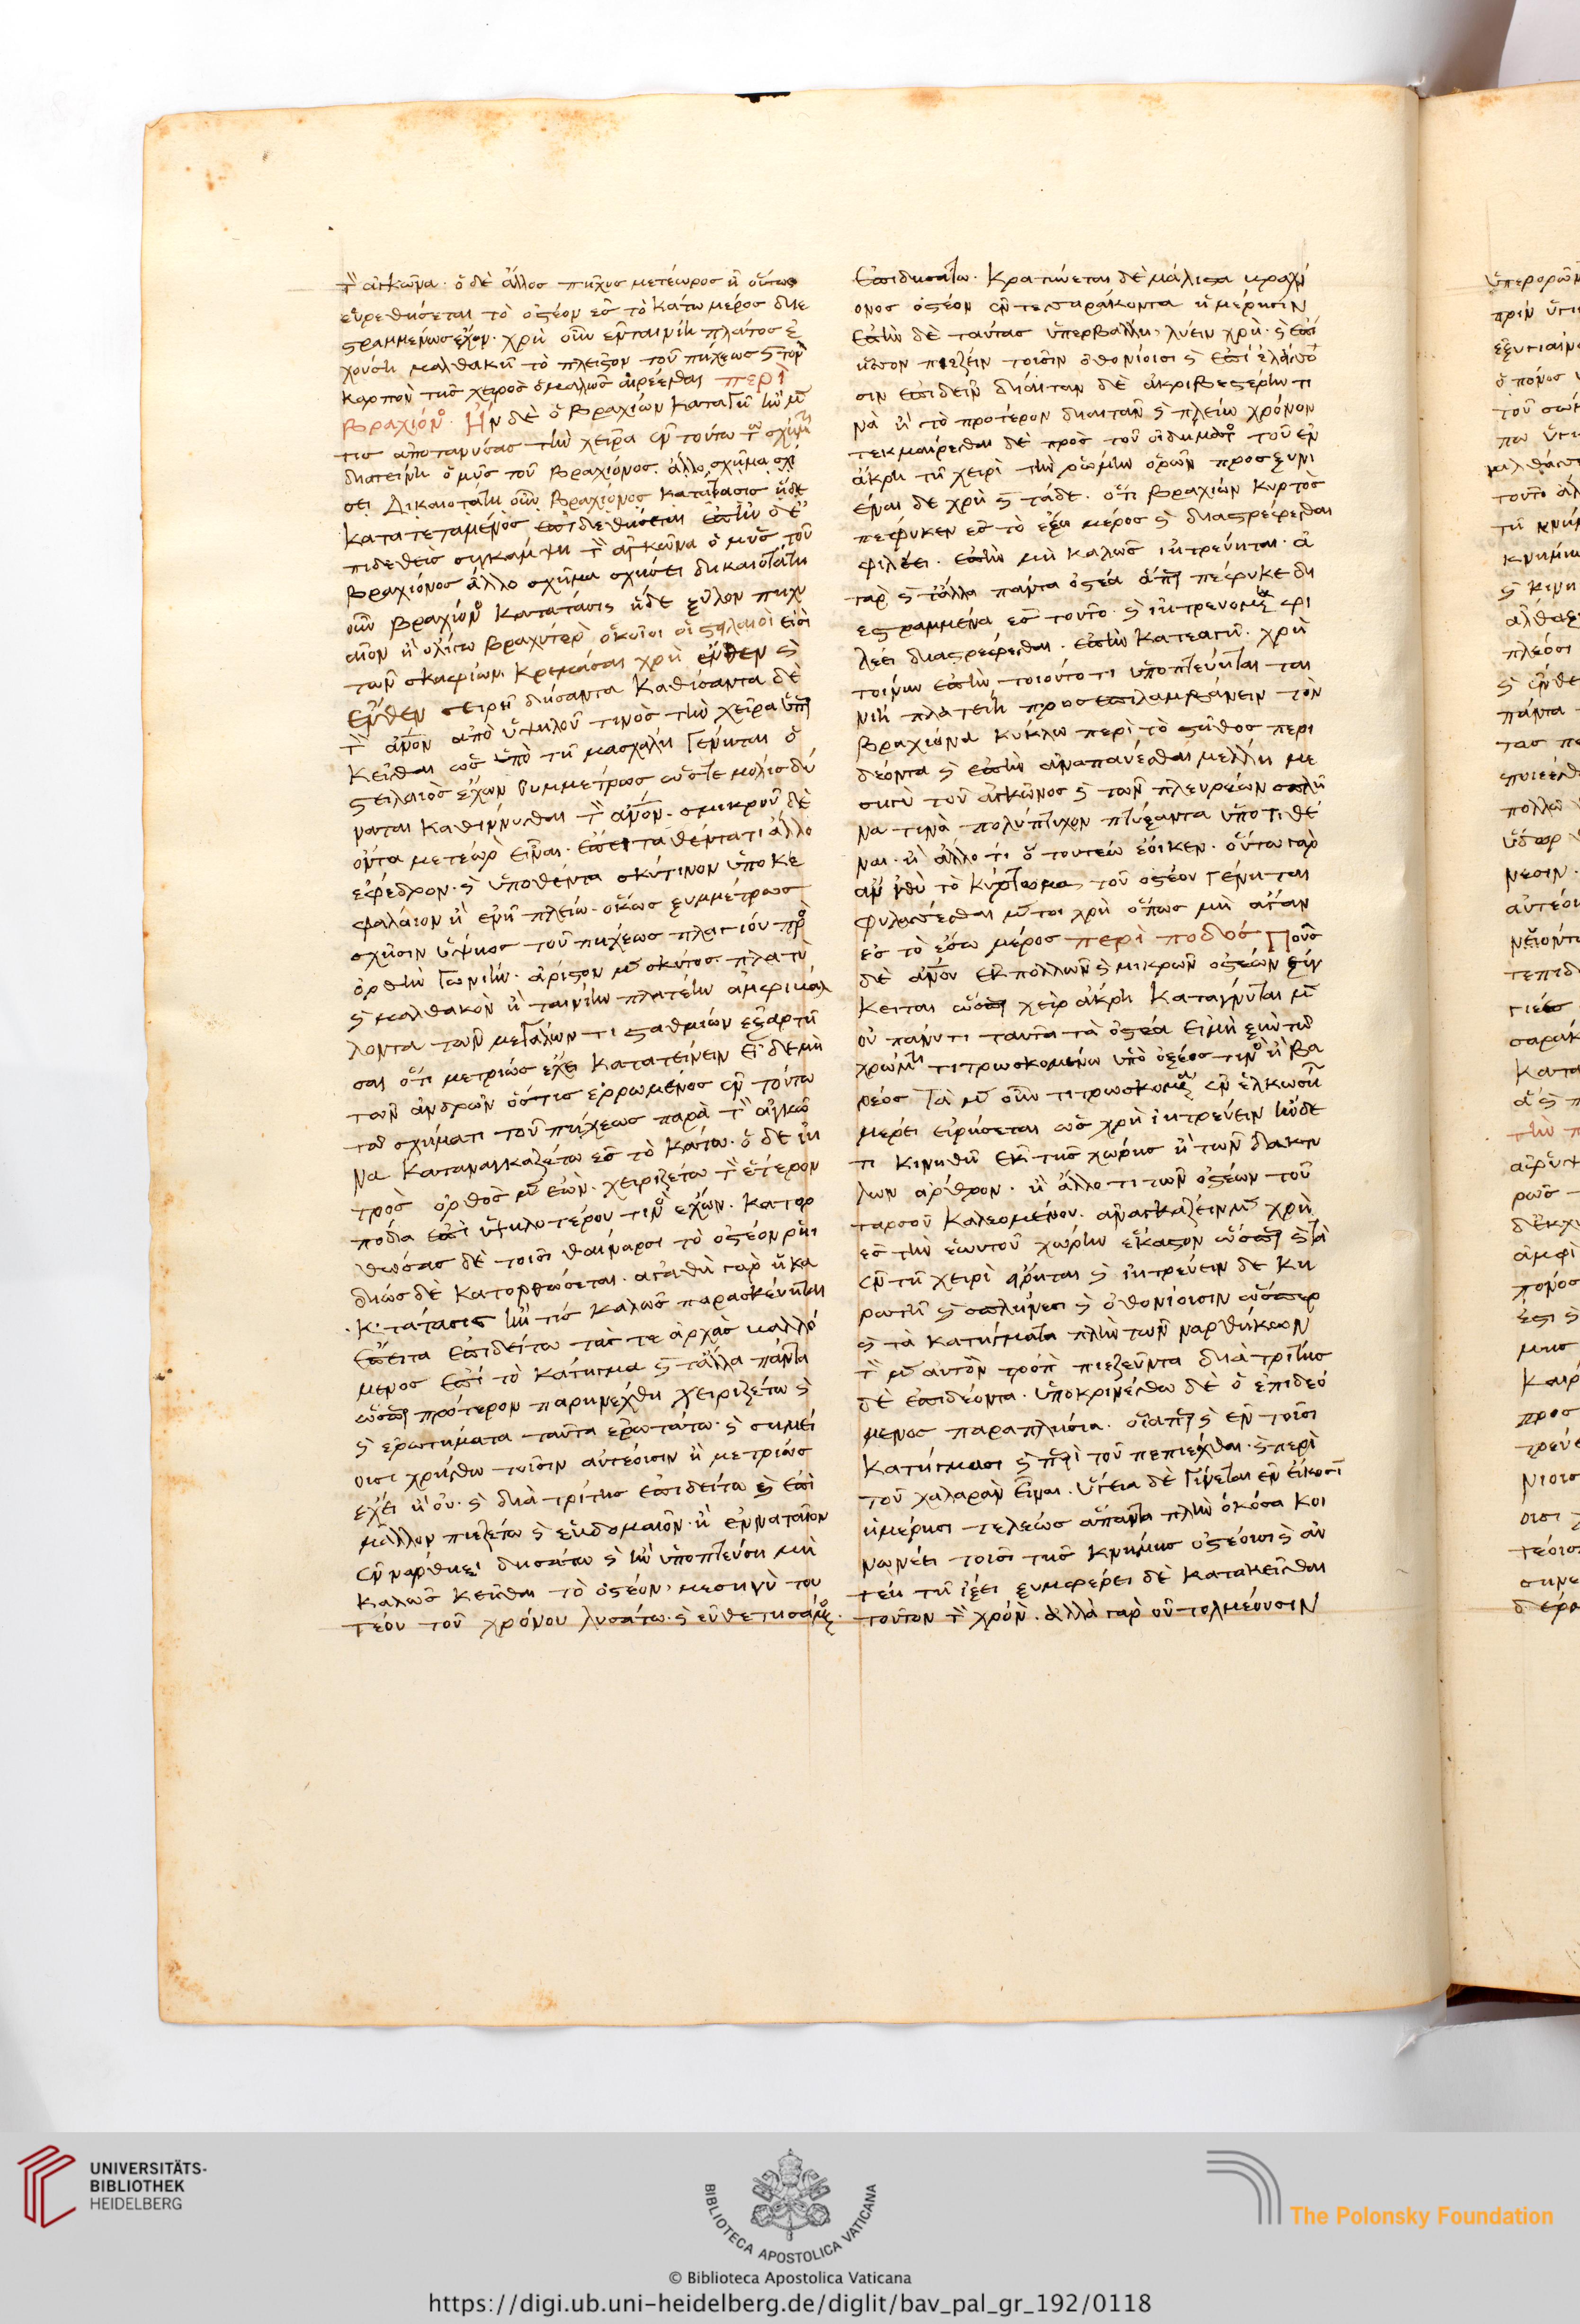 τ̀ ἀγκῶνα. ὁ δὲ ἄλλος πῆχυς μετέωρος ἢ οὕτως
εὑρεθήσεται τὸ ὀστέον ἐς τὸ κάτω μέρος διε
στραμμένως ἔχον. χρὴ οὖν ἐν ταινίη πλάτος ἐ
χούση μαλθακῆ τὸ πλεῖστον τοῦ πήχεως καὶ τὸν
καρπὸν τῆς χειρὸς ὁμαλῶς αἱρέεσθαι περὶ
βραχίονος. Ἢν δὲ ὁ βραχίων καταγῆ ἢν μὲν
τις ἀποτανύσας τὴν χεῖρα ἐν τούτω τῶ σχήματι
διατείνη ὁ μῦς τοῦ βραχίονος. ἄλλο σχῆμα σχή
σει Δικαιοτάτη οὖν βραχίονος κατάτασις ἥδε
κατατεταμένος ἐπιδεθήσεται ἐπὴν ὁ δὲ ἐ
πιδεθεὶς συγκάμψη τ̀ ἀγκῶνα ὁ μῦς τοῦ
βραχίονος ἄλλο σχῆμα σχήσει δικαιοτάτη
οὖν βραχίονος κατάτασις ἥδε ξύλον πηχυ
αῖον ἢ ὀλίγω βραχύτερον ὁκοῖοι οἱ στειλαιοί εἰσι
τῶν σκαφίων. κρεμάσαι χρὴ ἔνθεν καὶ
ἔνθεν σειρῆ δήσαντα καθίσαντα δὲ
τ̀ ἀνον ἀπὸ ὑψηλοῦ τινὸς τὴν χεῖρα ὑπερ
κεῖσθαι ὡς ὑπὸ τῆ μασχάλη γένηται ὁ
στειλαιὸς ἔχων συμμέτρως ὥστε μόλις δύ
νασθαι καθίννυσθαι τ̀ ἀνον. σμικροῦ δὲ
ὄντα μετέωρον εἶναι. ἔπειτα θέντα τι ἄλλο
ἔφεδρον. καὶ ὑποθέντα σκύτινον ὑποκε
φάλαιον ἢ ἓν ἢ πλείω. ὅκως ξυμμέτρως
σχήσιν ὕψηος τοῦ πήχεως πλαγίου πρὸς
ὀρθὴν γωνίην. ἄριστον μὲν σκύτος πλατὺ
καὶ μαλθακὸν ἢ ταινίην πλατέην ἀμφιβάλ
λοντα τῶν μεγάλων τι σταθμίων ἐξαρτῆ
σαι ὅτι μετρίως ἔχει κατατείνειν εἰ δὲ μὴ
τῶν ἀνδρῶν ὅστις ἐρρωμένος ἐν τούτω
τῶ σχήματι τοῦ πήχεως παρὰ τ̀ ἀγκῶ
να καταναγκαζέτω ἐς τὸ κάτω. ὁ δὲ ἰη
τρὸς ὀρθὸς μὲν ἐὼν. χειριζέτω τ̀ ἕτερον
πόδα ἐπὶ ὑψηλοτέρου τινὸς ἔχων. κατορ
θώσας δὲ τοῖσι θαίναρσι τὸ ὀστέον ῥηι
δίως δὲ κατορθώσεται. ἀγαθὴ γὰρ ἡ κα
κ. τάτασις ἤν τις καλῶς παρασκευήται
ἔπειτα ἐπιδείτω τάς τε ἀρχὰς βαλλό
μενος ἐπὶ τὸ κάτηγμα καὶ τἄλλα πάντα
ὥσπερ πρότερον παρηνέχθη χειριζέτω καὶ
καὶ ἐρωτήματα ταῦτα ἐρωτάτω. καὶ σημεί
οισι χρήσθω τοῖσιν αὐτέοισιν ἢ μετρίως
ἔχει ἢ οὔ. καὶ διὰ τρίτης ἐπιδείτω καὶ ἐπὶ
μᾶλλον πιεζέτω καὶ ἑβδομαῖον. ἢ ἐνναταῖον
ἐν νάρθηξι δησάτω καὶ ἢν ὑποπτεύση μὴ
καλῶς κεῖσθαι τὸ ὀστέον, μεσηγὺ του
τέου τοῦ χρόνου λυσάτω. καὶ εὐθετησάμενος.
ἐπιδησάτω. Κρατύνεται δὲ μάλιστα βραχί
ονος ὀστέον ἐν τεσσαράκοντα ἡμέρησιν
ἐπὴν δὲ ταύτας ὑπερβάλλη, λύειν χρὴ. καὶ ἐπὶ
ἧσσον πιέζειν τοῖσιν ὀθονίοισι καὶ ἐπὶ ἐλάσσο
σιν ἐπιδεῖν δίαιταν δὲ ἀκριβεστέρην τι
νὰ ἢ τὸ πρότερον διαιτᾶν καὶ πλείω χρόνον
τεκμαίρεσθαι δὲ πρὸς τοῦ οἰδήματος τοῦ ἐν
ἄκρη τῆ χειρὶ τὴν ῥώμην ὁρῶν προσξυνι
έναι δὲ χρὴ καὶ τάδε. ὅτι βραχίων κυρτὸς
πέφυκεν ἐς τὸ ἔξω μέρος καὶ διαστρέφεσθαι
φιλέει. ἐπὴν μὴ καλῶς ἰητρεύηται. ἀ
τὰρ καὶ τἄλλα πάντα ὀστέα ἅπερ πέφυκε δι
εστραμμένα ἐς τοῦτο. καὶ ἰητρευόμενα φι
λέει διαστρέφεσθαι. ἐπὴν κατεαγῆ. χρὴ
τοίνυν ἐπὴν τοιοῦτό τι ὑποπτεύηται ται
νίη πλατείη προσεπιλαμβάνειν τὸν
βραχίονα κύκλω περὶ τὸ στῆθος περι
δέοντα καὶ ἐπὴν ἀναπαύεσθαι μέλλη με
σηγὺ τοῦ ἀγκῶνος καὶ τῶν πλευρέων σπλῆ
να τινὰ πολύπτυχον πτύξαντα ὑποτιθέ
ναι. ἢ ἄλλό τι ὃ τουτέω ἔοικεν. οὕτω γὰρ
ἂν ἰθὺ τὸ κύρτωμα τοῦ ὀστέου γένηται
φυλάσσεσθαι μέντοι χρὴ ὅπως μὴ ἄγαν
ἐς τὸ ἔσω μέρος περὶ ποδὸς Ποῦς
δὲ ἀνου ἐκ πολλῶν καὶ μικρῶν ὀστέων ξύγ
κειται ὥσπερ χεὶρ ἄκρη κατάγνυται μὲν
οὐ πάνυ τι ταῦτα τὰ ὀστέα εἰ μὴ ξὺν τῶ
χρώματι τιτρωσκομένω ὑπὸ ὀξέος τινὸς ἢ βα
ρέος τὰ μὲν οὖν τιτρωσκόμενα ἐν ἑλκωσίων
μέρει εἰρήσεται ὡς χρὴ ἰητρεύειν ἢν δέ
τι κινηθῆ ἐκ τῆς χώρης ἢ τῶν δακτύ
λων ἄρθρον. ἢ ἄλλό τι τῶν ὀστέων τοῦ
ταρσοῦ καλεομένου. ἀναγκάζειν μὲν χρὴ
ἐς τὴν ἑωυτοῦ χώρην ἕκαστον ὥσπερ καὶ τὰ
ἐν τῆ χειρὶ εἴρηται καὶ ἰητρεύειν δὲ κη
ρωτῆ καὶ σπλήνεσι καὶ ὀθονίοισιν ὥσπερ
καὶ τὰ κατήγματα πλὴν τῶν ναρθήκων
τ̀ μὲν αὐτὸν τρόπον πιεζεῦντα διὰ τρίτης
δὲ ἐπιδέοντα. ὑποκρινέσθω δὲ ὁ ἐπιδεό
μενος παραπλήσια. οἷάπερ καὶ ἐν τοῖσι
κατήγμασι καὶ περὶ τοῦ πεπιέχθαι. καὶ περὶ
τοῦ χαλαρὰν εἶναι. ὑγιέα δὲ γίνεται ἐν εἴκοσι
ἡμέρησι τελέως ἅπαντα πλὴν ὁκόσα κοι
νωνέει τοῖσι τῆς κνήμης ὀστέοισι καὶ αὐ
τέη τῆ ἴξει ξυμφέρει δὲ κατακεῖσθαι
τοῦτον τ̀ χρόνον. ἀλλὰ γὰρ οὐ τολμέουσιν
UNIVERSITÄTS-
BIBLIOTHEK
HEIDELBERG
BIBLIOTECA APOSTOLICA VATICANA
The Polonsky Foundation
© Biblioteca Apostolica Vaticana
https://digi.ub.uni-heidelberg.de/diglit/bav_pal_gr_192/0118